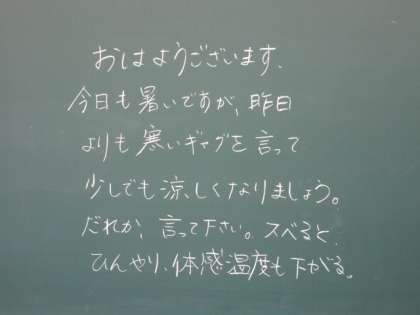 おはようございます.
今日も暑いですが、昨日
よりも寒いギャグを言って
少しでも涼しくなりましょう。
だれか、言って下さい。スベると、
ひんやり、体感温度も下がる。